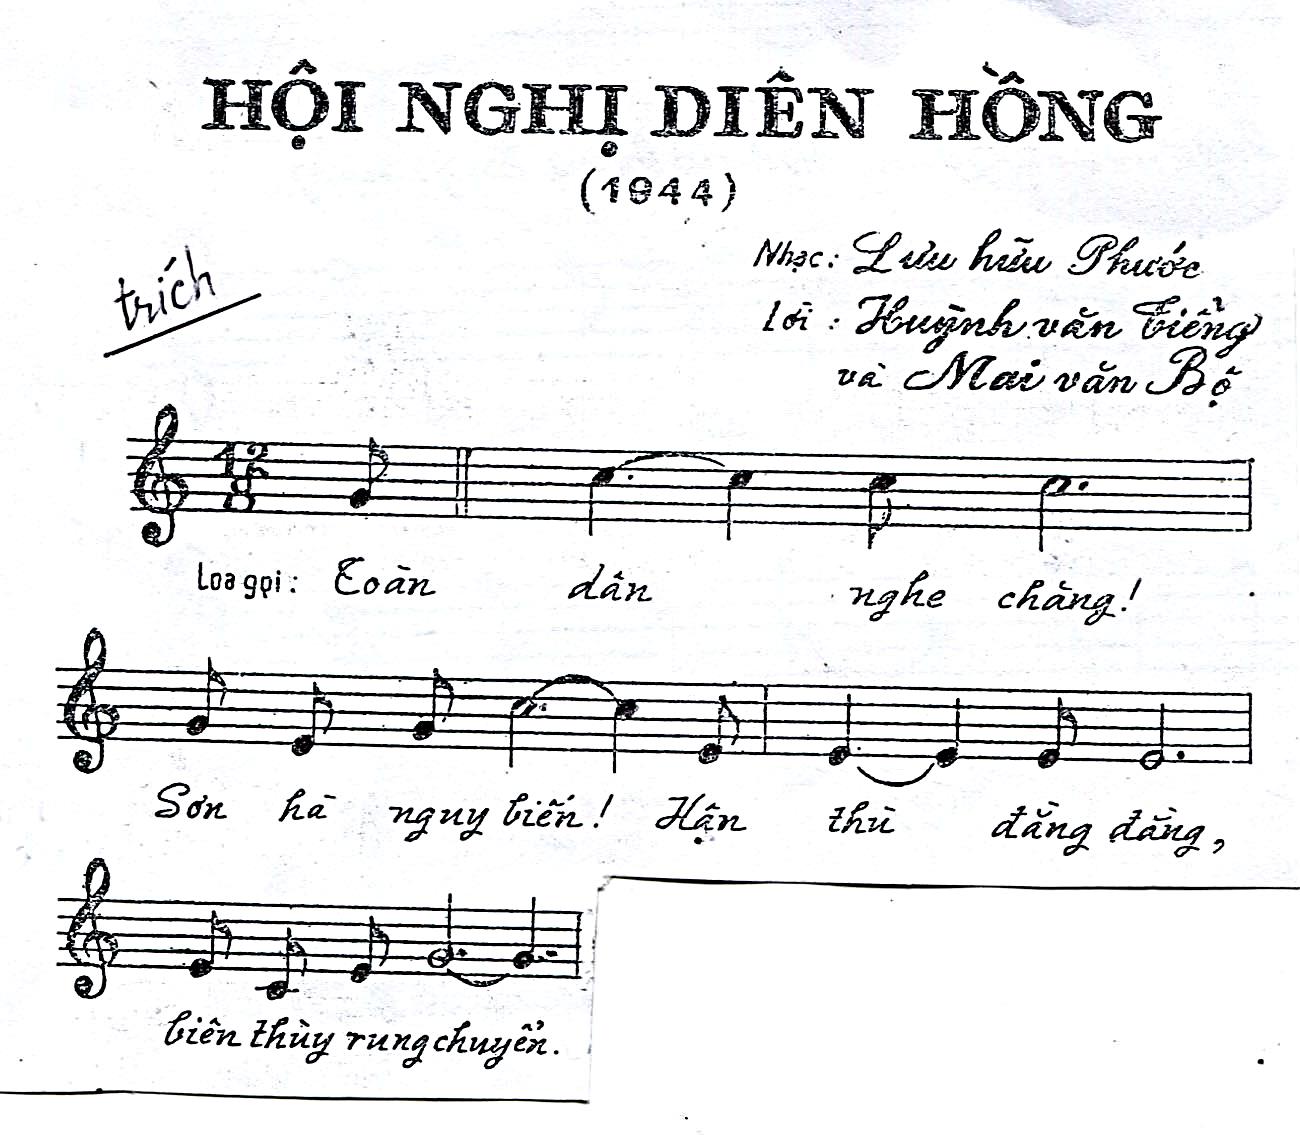 HỘI NGHỊ DIÊN HỒNG
(1944)
Nhạc: Lưu hữu Phước
trích
Lời: Huỳnh văn Tiểng
và Mai văn Bộ
12
8
Loa gọi: Toàn dân nghe chăng!
Sơn hà nguy biến! Hận thù đằng đằng,
biên thùy rung chuyển.